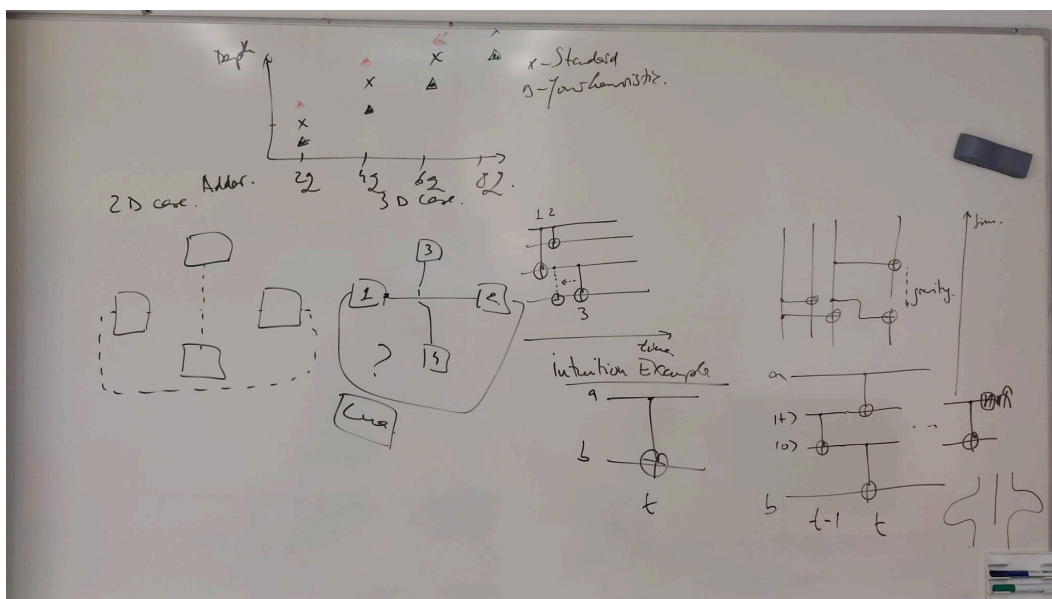 Depth
x - Standard
Δ - Your heuristic.
Adder.
2q
4q
6q
8q.
2D case.
3D case.
1 2
3
time
3
1
2
4
?
time.
gravity.
intuition Example
a
b
t
a
|+>
|0>
...
b
t-1
t